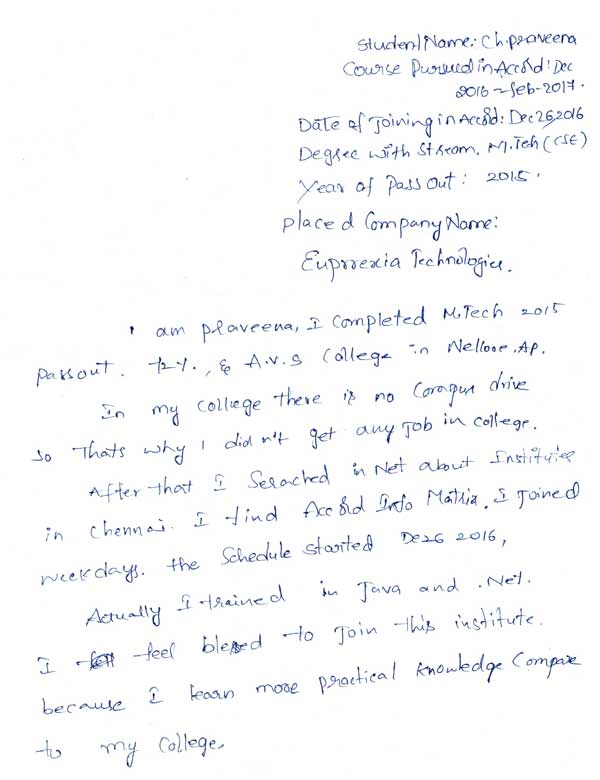 Student Name: Ch.praveena
Course Pursued in Accord: Dec
2016 - Feb-2017.
Date of Joining in Accord: Dec 26, 2016
Degree with Stream. M.Teh (CSE)
Year of Pass Out: 2015.
placed Company Name:
Euprrexia Technologies.
I am praveena, I completed M.Tech 2015
passout. 72%., A.V.S College in Nellore.AP.
In my college there is no Campus drive
So Thats why I didn't get any Job in college.
After that I Serached in Net about Institutes
in Chennai. I find Accord Info Matrix. I joined
weekdays. the Schedule started De26 2016,
Actually I trained in Java and .Net.
I feel blessed to Join this institute.
because I learn more practical knowledge Compare
to my College.